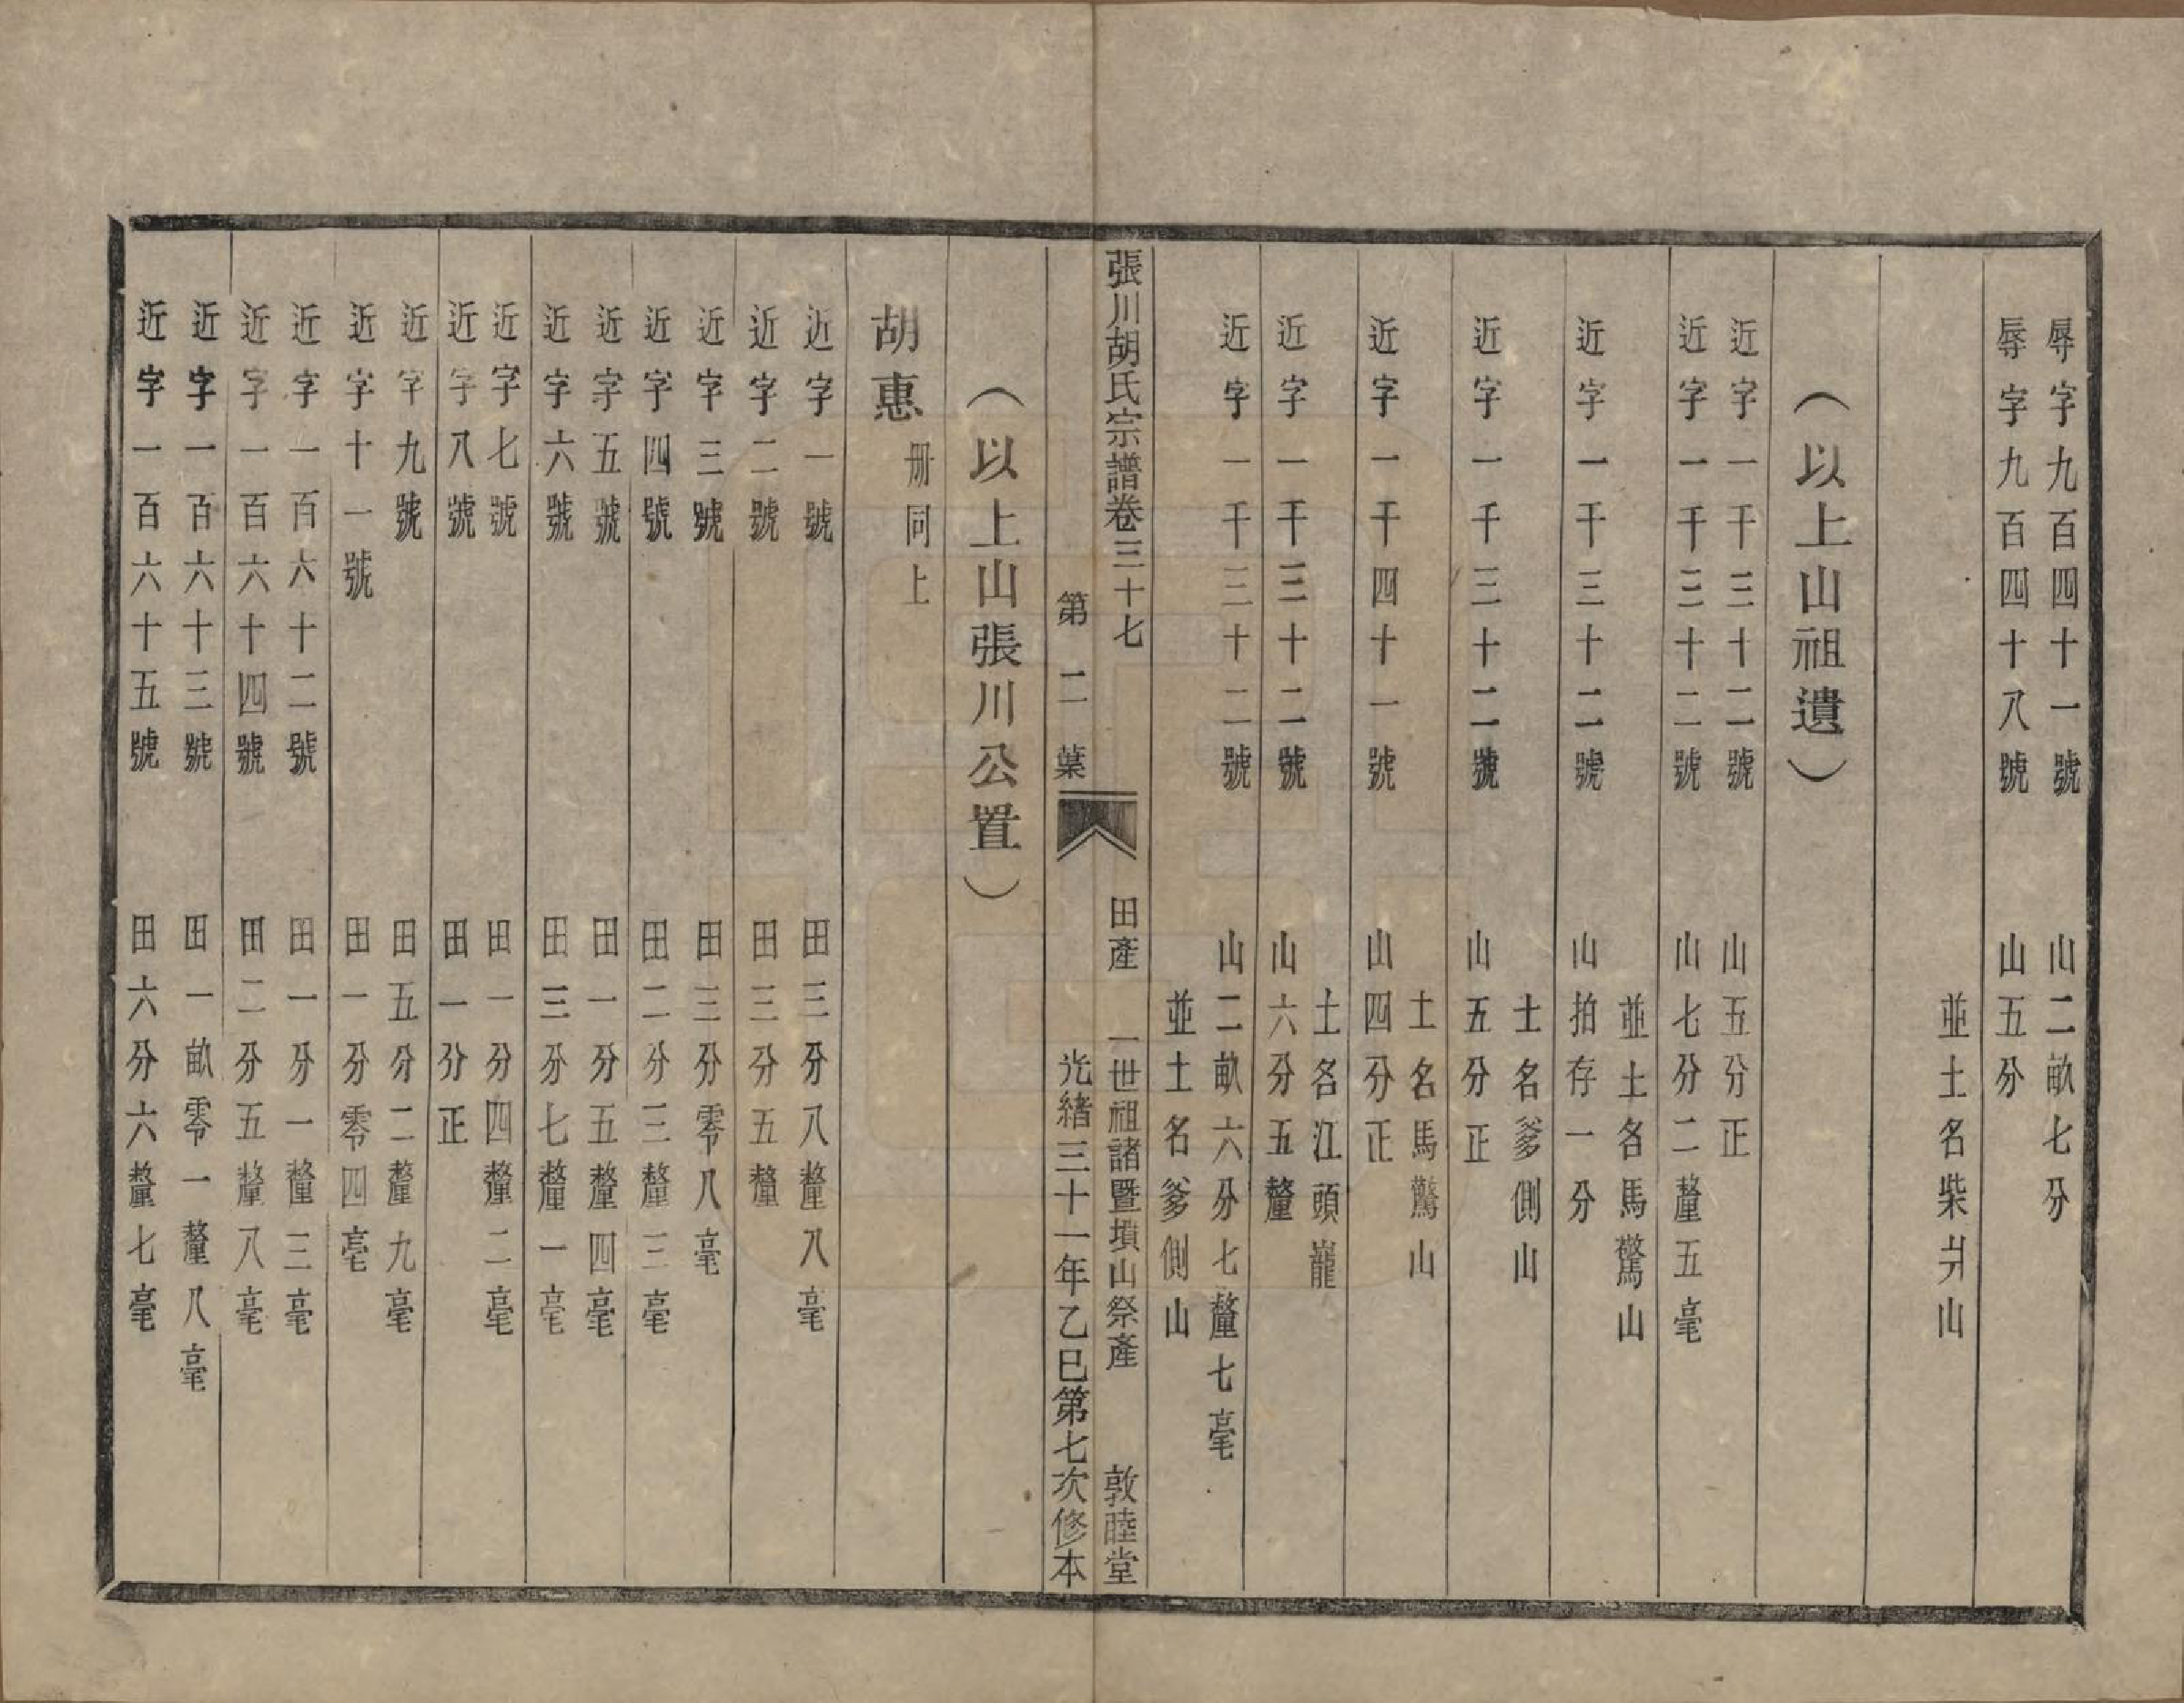 辱字九百四十一號　山二畝七分
辱字九百四十八號　山五分
並土名柴爿山
（以上山祖遺）
近字一千三十二號　山五分正
近字一千三十二號　山七分二釐五毫
並土名馬驚山
近字一千三十二號　山拍存一分
土名爹側山
近字一千三十二號　山五分正
土名馬驚山
近字一千四十一號　山四分正
土名江頭巃
近字一千三十二號　山六分五釐
近字一千三十二號　山二畝六分七釐七毫
並土名爹側山
張川胡氏宗譜卷三十七　田產　一世祖諸暨墳山祭產　敦睦堂
第二葉　光緒三十一年乙巳第七次修本
（以上山張川公置）
胡惠　冊同上
近字一號　田三分八釐八毫
近字二號　田三分五釐
近字三號　田三分零八毫
近字四號　田二分三釐三毫
近字五號　田一分五釐四毫
近字六號　田三分七釐一毫
近字七號　田一分四釐二毫
近字八號　田一分正
近字九號　田五分二釐九毫
近字十一號　田一分零四毫
近字一百六十二號　田一分一釐三毫
近字一百六十四號　田二分五釐八毫
近字一百六十三號　田一畝零一釐八毫
近字一百六十五號　田六分六釐七毫